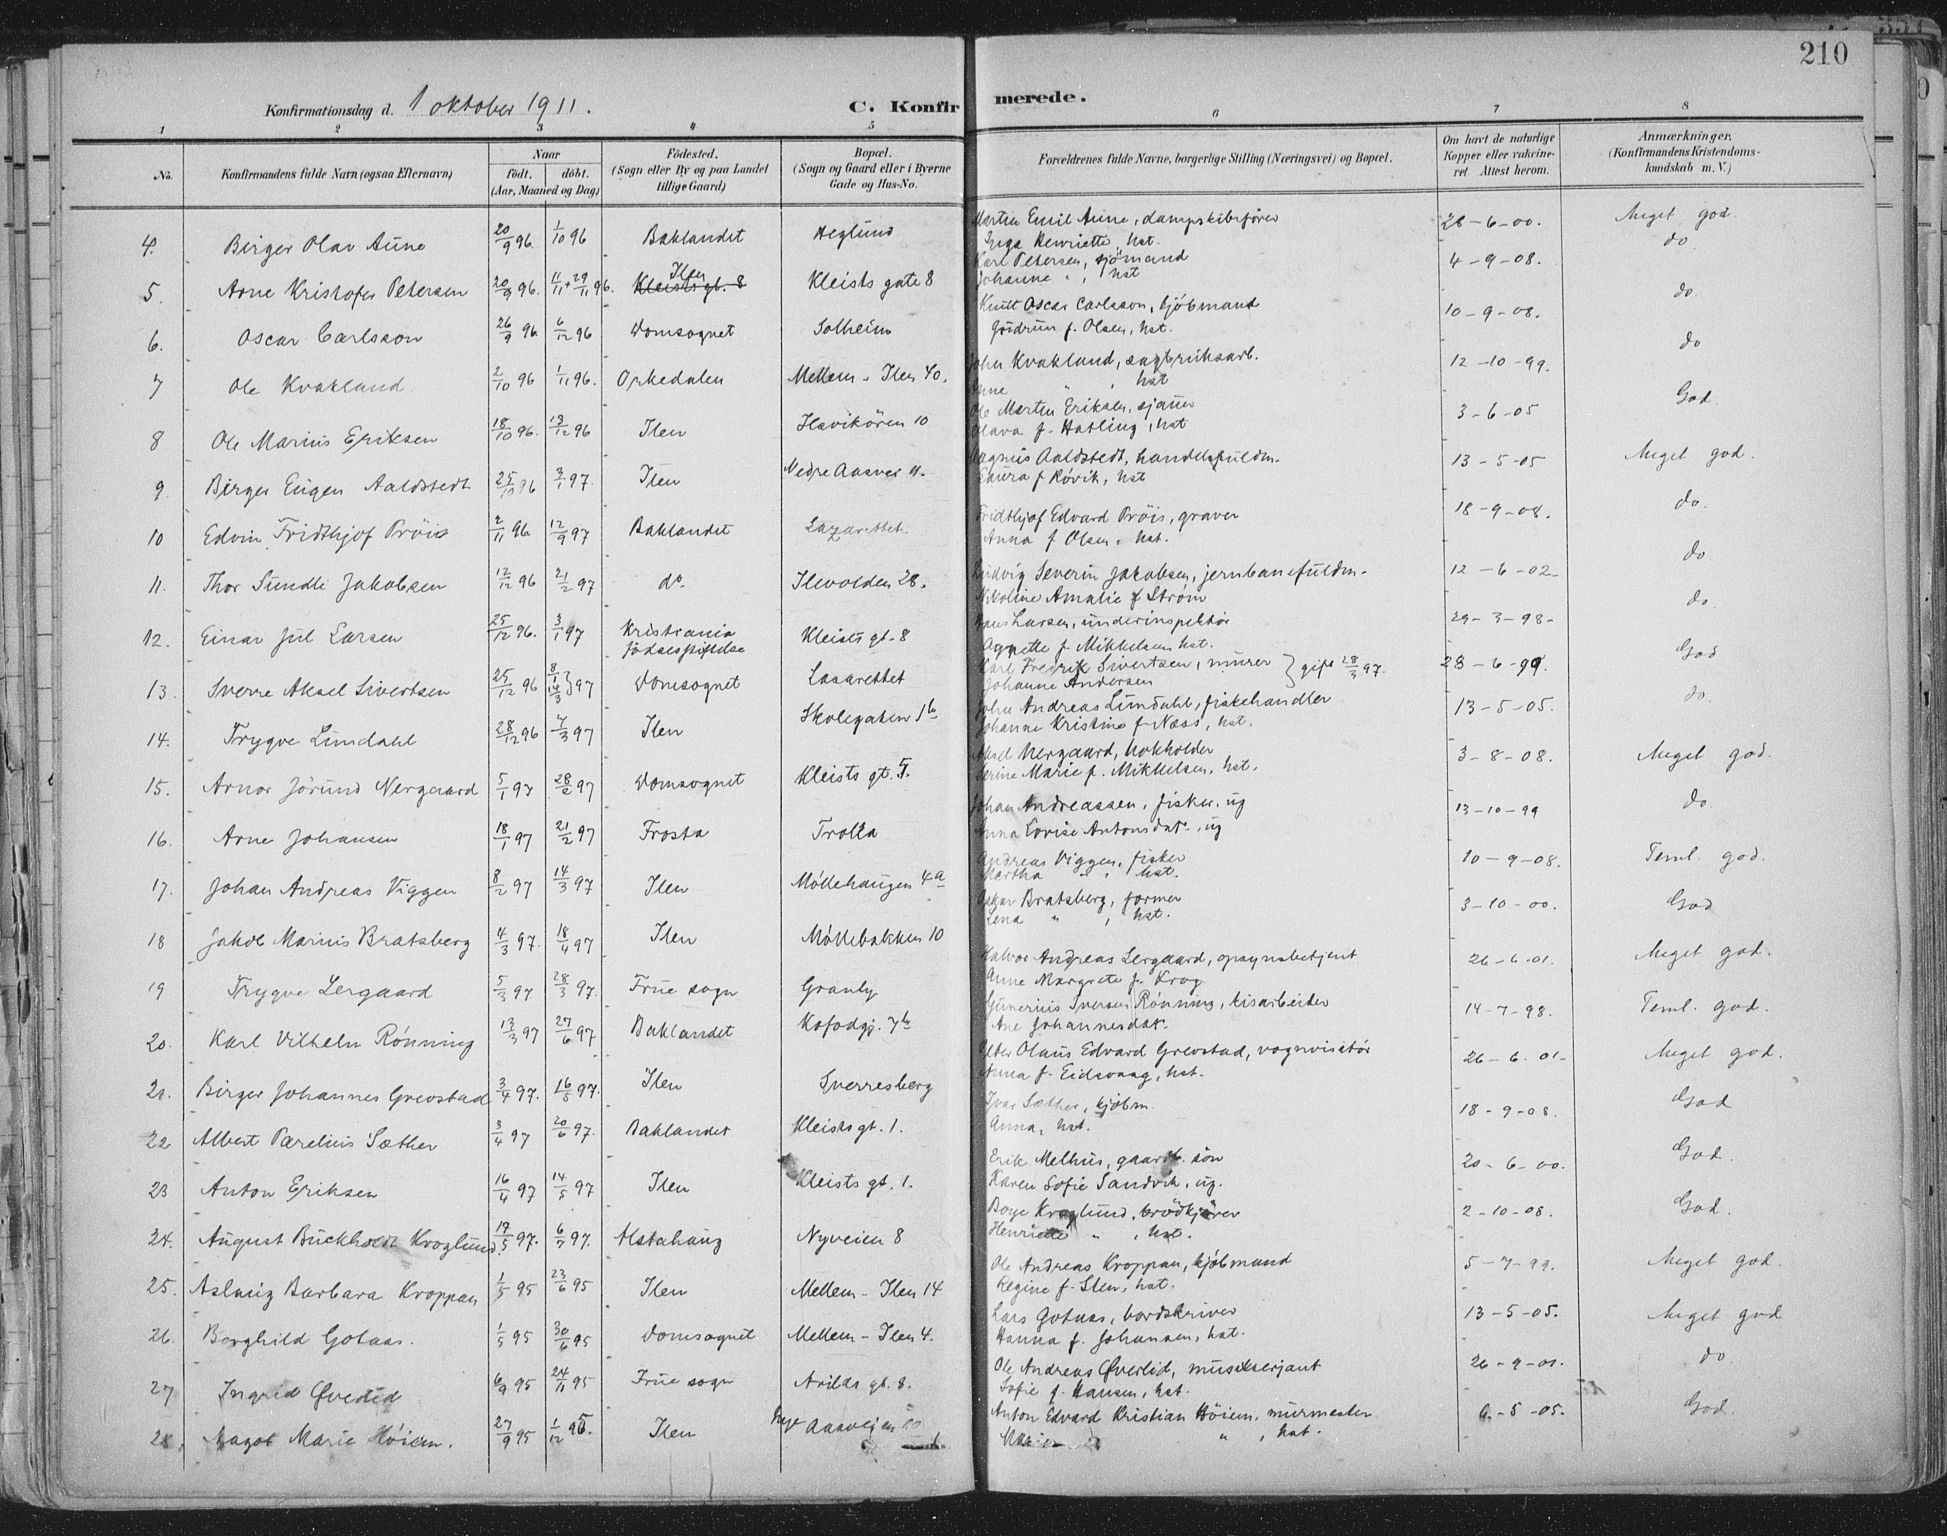 210
Konfirmationsdag d. 1 oktober 1911.
C. Konfirmerede.
1 2 3 4 5 6 7 8
No.
Konfirmandens fulde Navn (ogsaa Efternavn)
Naar
født. døbt.
(Aar, Maaned og Dag)
Födested.
(Sogn eller By og paa Landet
tillige Gaard)
Bopæl.
(Sogn og Gaard eller i Byerne
Gade og Hus-No.
Forældrenes fulde Navne, borgerlige Stilling (Næringsvei) og Bopæl.
Om havt de naturlige
Kopper eller vakcine-
ret. Attest herom.
Anmærkninger,
(Konfirmandens Kristendoms-
kundskab m. V.)
4. Birger Olav Aune 20/9 96. 1/10 96 Baklandet Heglund Martin Emil Aune, dampskibsfører 28-6-00. Meget god.
Inga Henriette, hst.
5. Arne Kristofer Petersen 20/9 96. 11/11 + 29/11 96. Ilen Kleists gt. 8 Kleists gate 8 Karl Petersen, sjömand 4-9-08. do
Johanne " , hst
6. Oscar Carlsson 26/9 96 6/12 96 Domsognet Solheim Knut Oscar Carlsson, kjöbmand 10-9-08. do.
Gudrun f. Olsen, hst.
7 Ole Kvakland 2/10 96 1/11 96. Orkedalen Mellem-Ilen 40. John Kvakland, sagbruksarb. 12-10-99. do
" , hst
8 Ole Marius Eriksen 18/10 96. 13/12 96 Ilen Ilsvikören 10 Ole Martin Eriksen, sjauer 3-6-05 God
Olava f. Hatling, hst
9. Birger Eugen Aaldstedt 25/10 96 3/1 97. Ilen Nedre Aasvei 11. Magnus Aaldstedt, handelsfuldm. 13-5-05 Meget god.
Laura f. Rövik, hst
10 Edvin Fridthjof Pröis 2/11 96 12/9 97 Baklandet Lazarettet. Fridthjof Edvard Pröis, graver 18-9-08. do.
Anna f Olsen, hst.
11. Thor Sundli Jakobsen 12/12 96 21/2 97 do. Ilevolden 28. Ludvig Severin Jakobsen, jernbanefuldm. 12-6-02 do
Nikoline Amalie f Ström
12. Einar Jul Larsen 25/12 96. 3/1 97 Kristiania
födselsstiftelse Kleists gt. 8 Hans Larsen, underinspektör 29-3-98- do
Agnette f. Mikkelsen hst.
13. Sverre Aksel Sivertsen 25/12 96 8/1 14/3 } 97 Domsognet Lasarettet Karl Fredrik Sivertsen, murer } gift 28/3 97. 28-6-99. God
Johanne Andersen
14. Trygve Lundahl 28/12 96 7/3 97 Ilen Skolegaten 1b John Andreas Lundahl, fiskehandler 13-5-05. do.
Johanne Kristine f. Næss, hst.
15. Arnor Jörund Nergaard 5/1 97 28/2 97 Domsognet Kleists gt. 5. Aksel Nergaard, bokholder 3-8-08. Meget god.
Marie f. Mikkelsen, hst.
16. Arne Johansen 18/1 97 21/2 97 Frosta Trolla Johan Andreassen, fisker, ug 13-10-99 do.
Anna Lovise Antonsdat., ug
17. Johan Andreas Viggen 8/2 97 14/3 97 Ilen Möllehaugen 4a Andreas Viggen, fisker 10-9-08. Teml. god.
Martha " , hst.
18 Jakob Marius Bratsberg 4/3 97. 18/4 97 Ilen Möllebakken 10 Oskar Bratsberg, former 3-10-00. God
Lena " , hst.
19 Trygve Lergaard 5/3 97 28/3 97. Frue sogn Granly Halvor Andreas Lergaard, opsynsbetjent 26-6-01. Meget god.
Anne Margrete f. Krog
20. Karl Vilhelm Rönning 13/3 97 27/6 97 Baklandet Kofodgj. 7b Gunerius Iversen Rönning, kisarbeider 14-7-98. Teml. god.
Ane Johannesdat.
21. Birger Johannes Grevstad 3/4 97. 16/5 97. Ilen Sverresberg Peter Olaus Edvard Grevstad, vognvisitör 26-6-01- Meget god.
Anna f. Eidsvaag, hst.
22 Albert Parelius Sæther 3/4 97 20/6 97. Baklandet Kleists gt. 1. Ivar Sæther, kjöbm. 18-9-08. God
Anna, hst.
23 Anton Eriksen 16/4 97 14/5 97 Ilen Kleists gt. 1. Erik Melhus, gaardb. sön 20-6-00. God.
Karen Sofie Sandvik, ug.
24. August Buckholdt Kroglund 17/5 97. 6/7 97. Alstahaug Nyveien 8 Boye Kroglund, brödkjører 2-10-08. God.
Henriette " , hst.
25. Aslaug Barbara Kroppan 1/5 95 23/6 95 Ilen Mellem-Ilen 14 Ole Andreas Kroppan, kjöbmand 5-7-99. Meget god.
Regine f. Sten, hst.
26. Borghild Gotaas. 1/5 95 30/6 95 Domsognet Mellem-Ilen 4. Lars Gotaas, bordskriver 13-5-05. Meget god
Hanna f. Johansen, hst.
27 Ingrid Øverlid 6/9 95 24/11 95 Frue sogn Arilds gt. 8. Ole Andreas Øverlid, musikserjant 26-9-01. do
Sofie f. Hansen, hst.
28. Aagot Marie Höiem. 27/9 95 1/12 95. Ilen Aasveien 10 Anton Edvard Kristian Höiem, murmester 6-5-05. God.
" , hst.